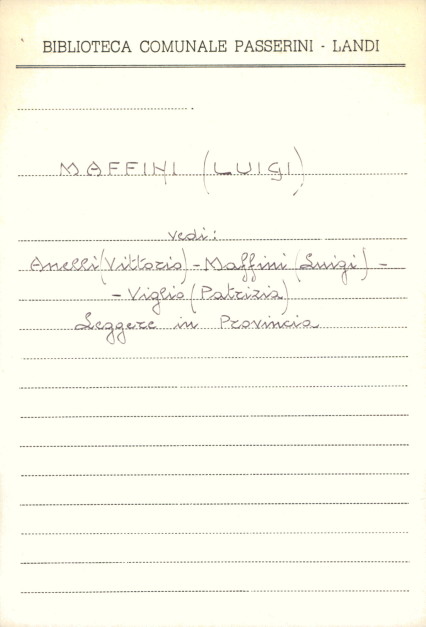 BIBLIOTECA COMUNALE PASSERINI - LANDI
MAFFINI (LUIGI)
vedi:
Anelli (Vittorio) - Maffini (Luigi) -
- Viglio (Patrizia)
Leggere in Provincia